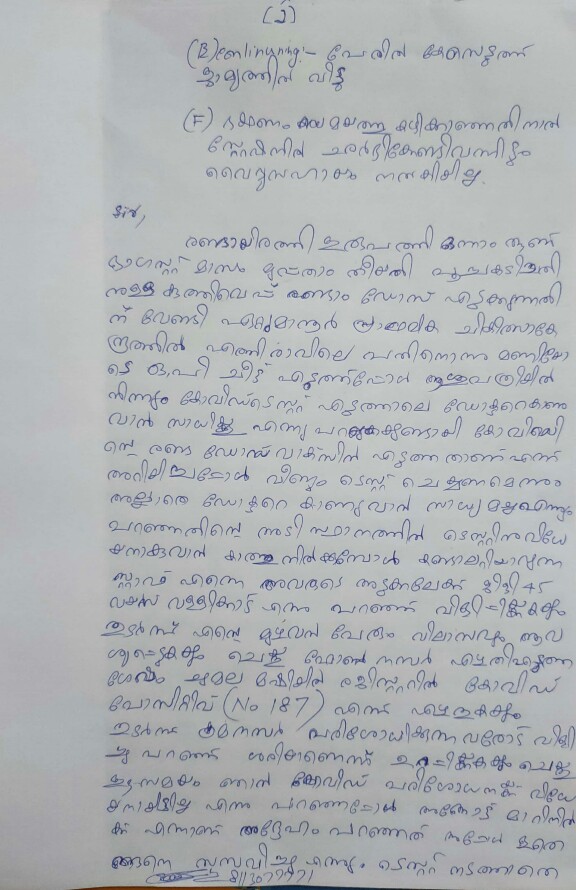 (2)
പേരിൽ കേസെടുത്ത്
ജാമ്യത്തിൽ വിട്ടു
(F) ഭക്ഷണം സമയത്തു കഴിക്കാഞ്ഞതിനാൽ
സ്റ്റേഷനിൽ ഛർദ്ദിക്കേണ്ടിവന്നിട്ടും
വൈദ്യസഹായം നൽകിയില്ല.
സർ,
രണ്ടായിരത്തി ഇരുപത്തി ഒന്നാം ആണ്ട്
ഓഗസ്റ്റ് മാസം മുപ്പതാം തീയതി പൂച്ചകടിച്ചതി
നുള്ള കുത്തിവെപ്പ് രണ്ടാം ഡോസ് എടുക്കുന്നതി
ന് വേണ്ടി ഏറ്റുമാനൂർ പ്രാഥമിക ചികിത്സാകേ
ന്ദ്രത്തിൽ എത്തി രാവിലെ പതിനൊന്നു മണിയോ
ടെ ഒ.പി ചീട്ട് എടുത്തപ്പോൾ ആശുപത്രിയിൽ
നിന്നും കോവിഡ് ടെസ്റ്റ് എടുത്താലെ ഡോക്ടറെകാണു
വാൻ സാധിക്കൂ എന്നു പറയുകയുണ്ടായി കോവിഡി
ന്റെ രണ്ടു ഡോസ് വാക്സിൻ എടുത്തതാണ് എന്ന്
അറിയിച്ചപ്പോൾ വീണ്ടും ടെസ്റ്റ് ചെയ്യണമെന്നും
അല്ലാതെ ഡോക്ടറെ കാണുവാൻ സാധ്യമല്ലഎന്നും
പറഞ്ഞതിന്റെ അടിസ്ഥാനത്തിൽ ടെസ്റ്റിനുവിധേ
യനാകുവാൻ കാത്തുനിൽക്കുമ്പോൾ കണ്ടാലറിയാവുന്ന
സ്റ്റാഫ് എന്നെ അവരുടെ അടുക്കലേക്ക് വിളിച്ച് 45
വയസ് വള്ളിക്കാട് എന്നു പറഞ്ഞ് വിളിപ്പിക്കുകയും
തുടർന്ന് എന്റെ മുഴുവൻ പേരും വിലാസവും ആവ
ശ്യപ്പെടുകയും ചെയ്തു ഫോൺ നമ്പർ എഴുതിഎടുത്ത
ശേഷം ചുമല മഷിയിൽ രജിസ്റ്ററിൽ കോവിഡ്
പോസിറ്റീവ് (No 187) എന്ന് എഴുതുകയും
തുടർന്നു ക്രമനമ്പർ പരിശോധിക്കുന്നവരോട് വിളി
ച്ചു പറഞ്ഞ് ശരിയാണെന്ന് ഉറപ്പിക്കുകയും ചെയ്തു
ഈസമയം ഞാൻ കോവിഡ് പരിശോധനക്ക് വിധേ
യനായിട്ടില്ല എന്നു പറഞ്ഞപ്പോൾ അങ്ങോട്ട് മാറിനിൽ
ക്ക് എന്നാണ് അദ്ദേഹം പറഞ്ഞത് അപ്പോൾ ഇതെ
ങ്ങനെ സംഭവിച്ചു എന്നും ടെസ്റ്റ് നടത്താതെ